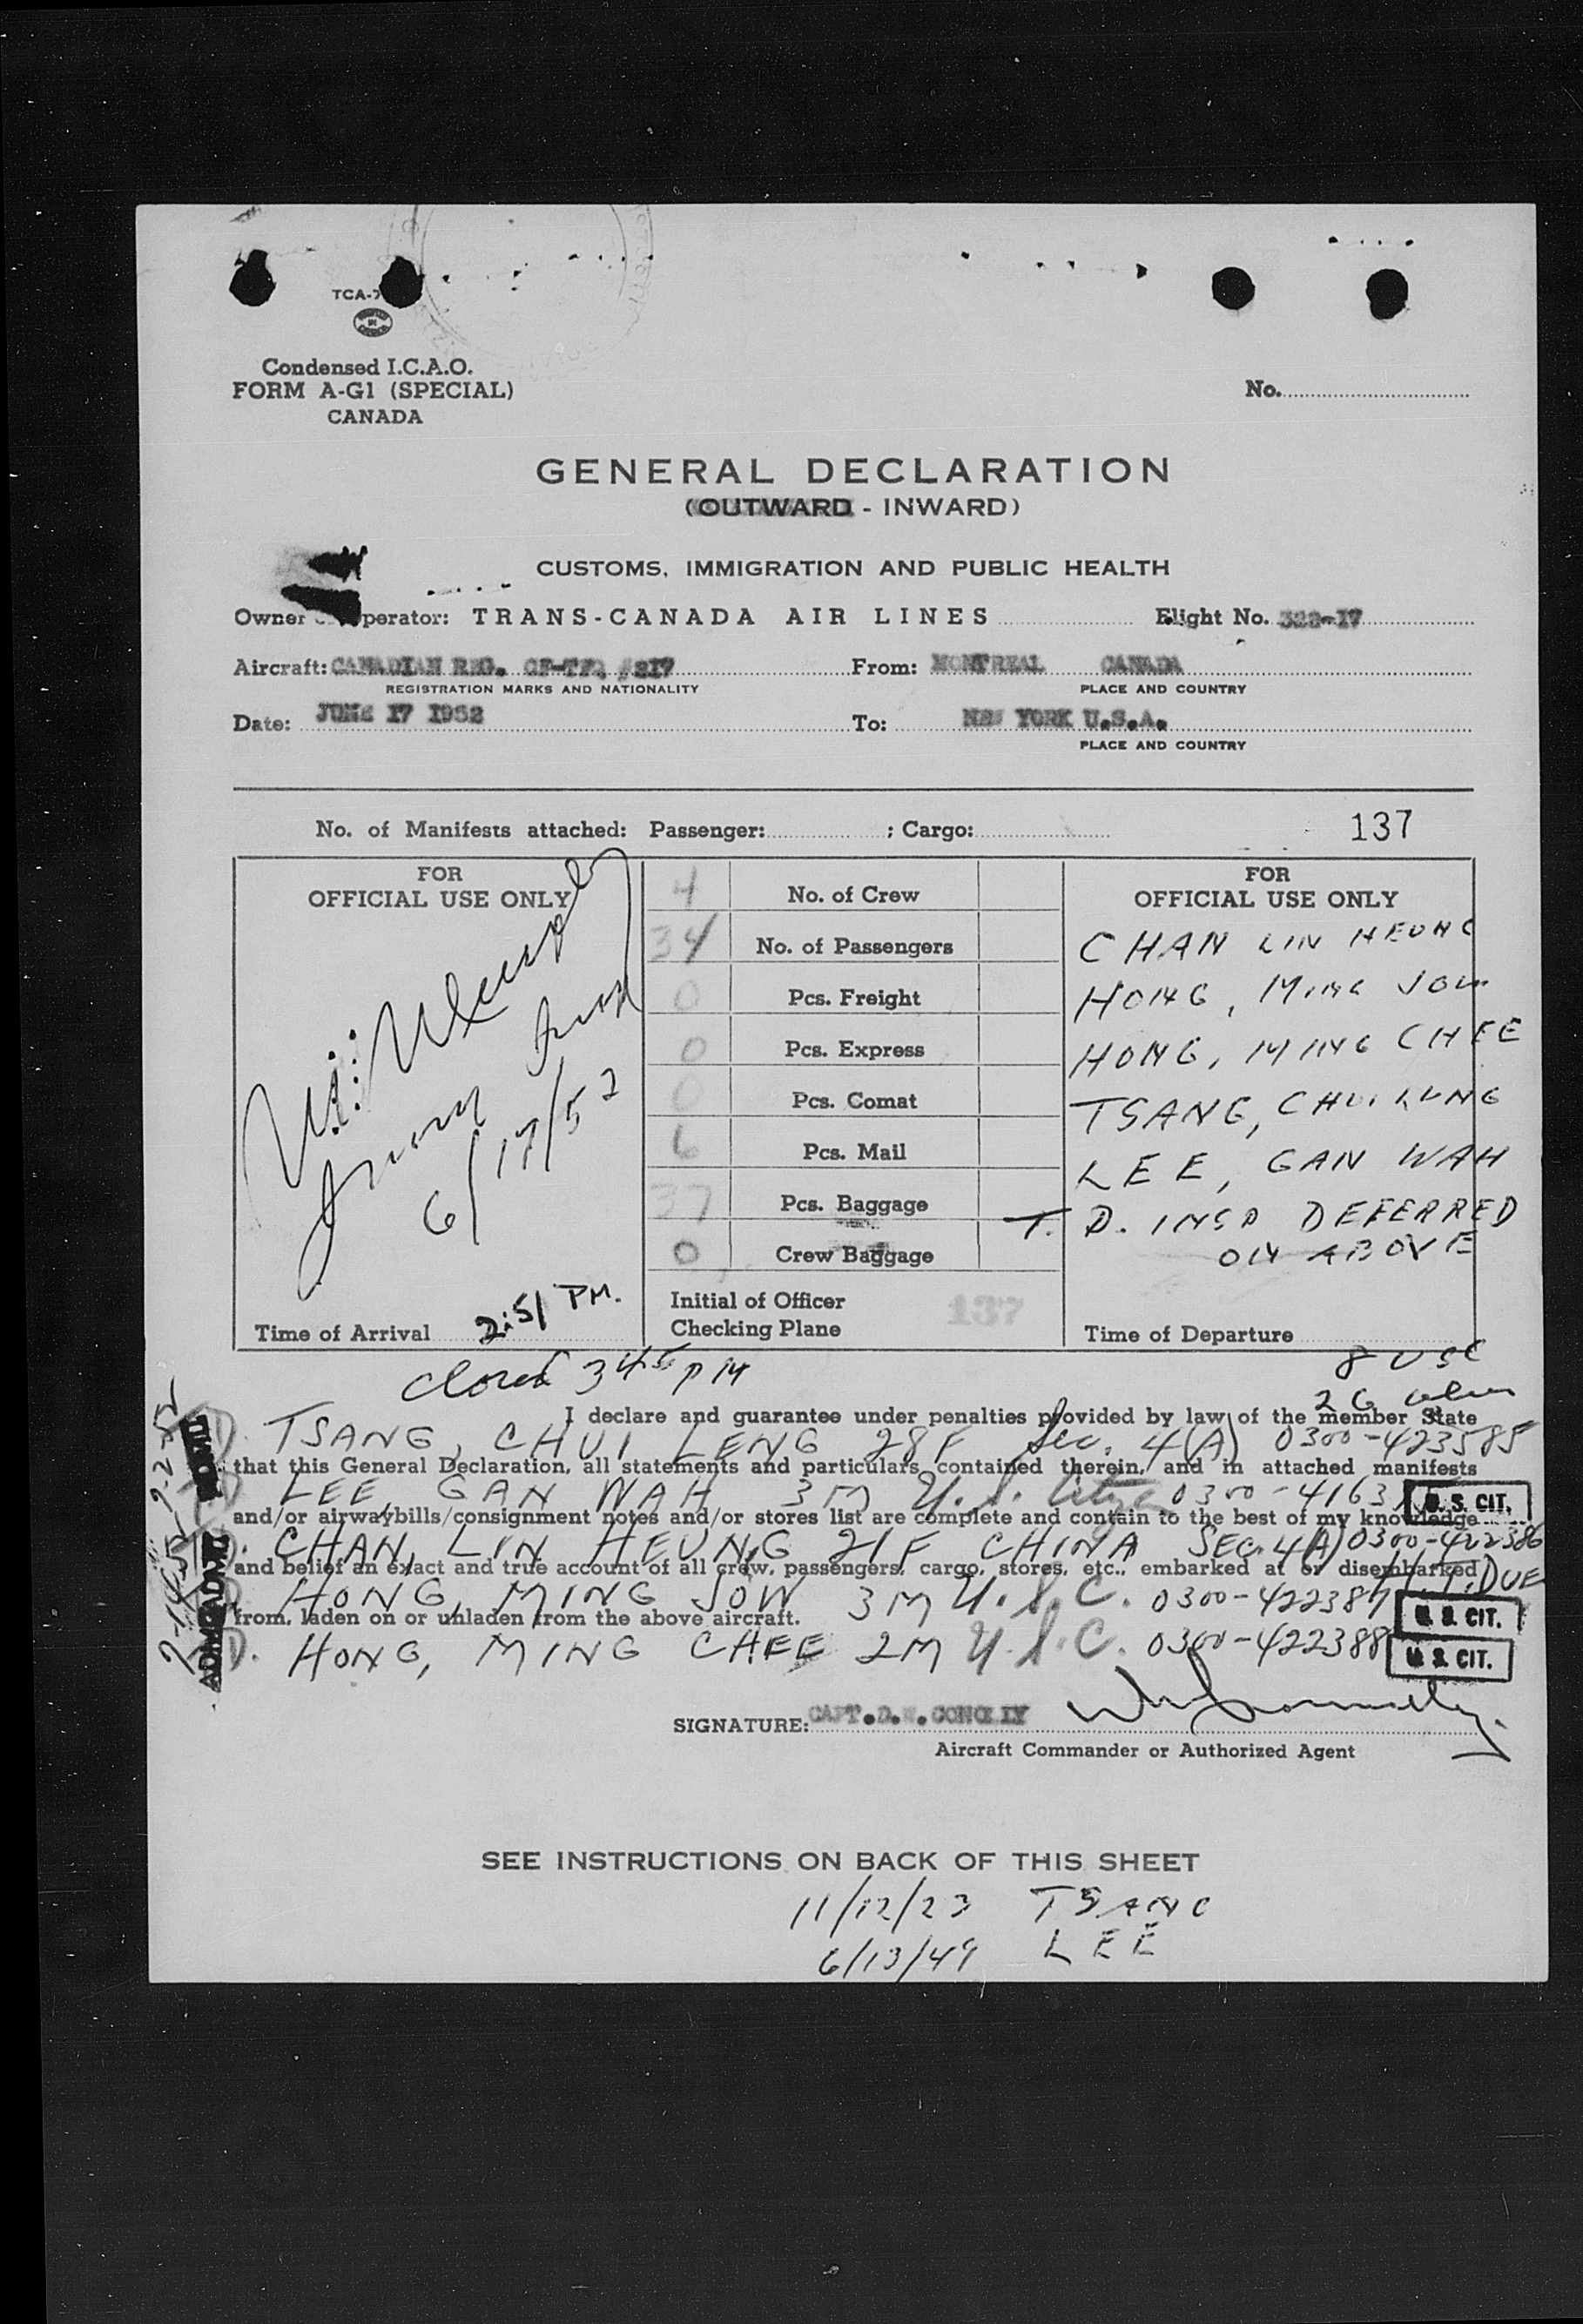 TCA-7
Condensed I.C.A.O.
FORM A-G1 (SPECIAL)
CANADA
No.
GENERAL DECLARATION
(OUTWARD - INWARD)
CUSTOMS, IMMIGRATION AND PUBLIC HEALTH
Owner perator: TRANS-CANADA AIR LINES Flight No. 322-17
Aircraft: CANADIAN REG. CF-TFQ #217 From: MONTREAL CANADA
REGISTRATION MARKS AND NATIONALITY PLACE AND COUNTRY
Date: JUNE 17 1952 To: NEW YORK U.S.A.
PLACE AND COUNTRY
No. of Manifests attached: Passenger: ; Cargo: 137
FOR
OFFICIAL USE ONLY
6/17/52
Time of Arrival 2:51 PM.
4 No. of Crew
34 No. of Passengers
0 Pcs. Freight
0 Pcs. Express
0 Pcs. Comat
6 Pcs. Mail
37 Pcs. Baggage
0 Crew Baggage
Initial of Officer
Checking Plane 137
FOR
OFFICIAL USE ONLY
CHAN LIN HEUNG
HONG, MING JOW
HONG, MING CHEE
TSANG, CHUI LUNG
LEE, GAN WAH
T. D. INSP DEFERRED
ON ABOVE
Time of Departure
Closed 3 45 PM
8 USC
26
I declare and guarantee under penalties provided by law of the member State
TSANG, CHUI LENG 28F Sec. 4(A) 0300-423585
that this General Declaration, all statements and particulars contained therein, and in attached manifests
LEE, GAN WAH 3M U.S. Citizen 0300-4163 U. S. CIT.
and/or airwaybills/consignment notes and/or stores list are complete and contain to the best of my knowledge
CHAN, LIN HEUNG 21F CHINA SEC. 4(A) 0300-422386
and belief an exact and true account of all crew, passengers, cargo, stores, etc., embarked at or disembarked
H.T. DUE
HONG, MING JOW 3M U.S.C. 0300-422387 U. S. CIT.
from, laden on or unladen from the above aircraft.
HONG, MING CHEE 2M U.S.C. 0300-422388 U. S. CIT.
SIGNATURE: CAPT. D.W. CONOLLY
Aircraft Commander or Authorized Agent
SEE INSTRUCTIONS ON BACK OF THIS SHEET
11/12/23 TSANG
6/13/49 LEE